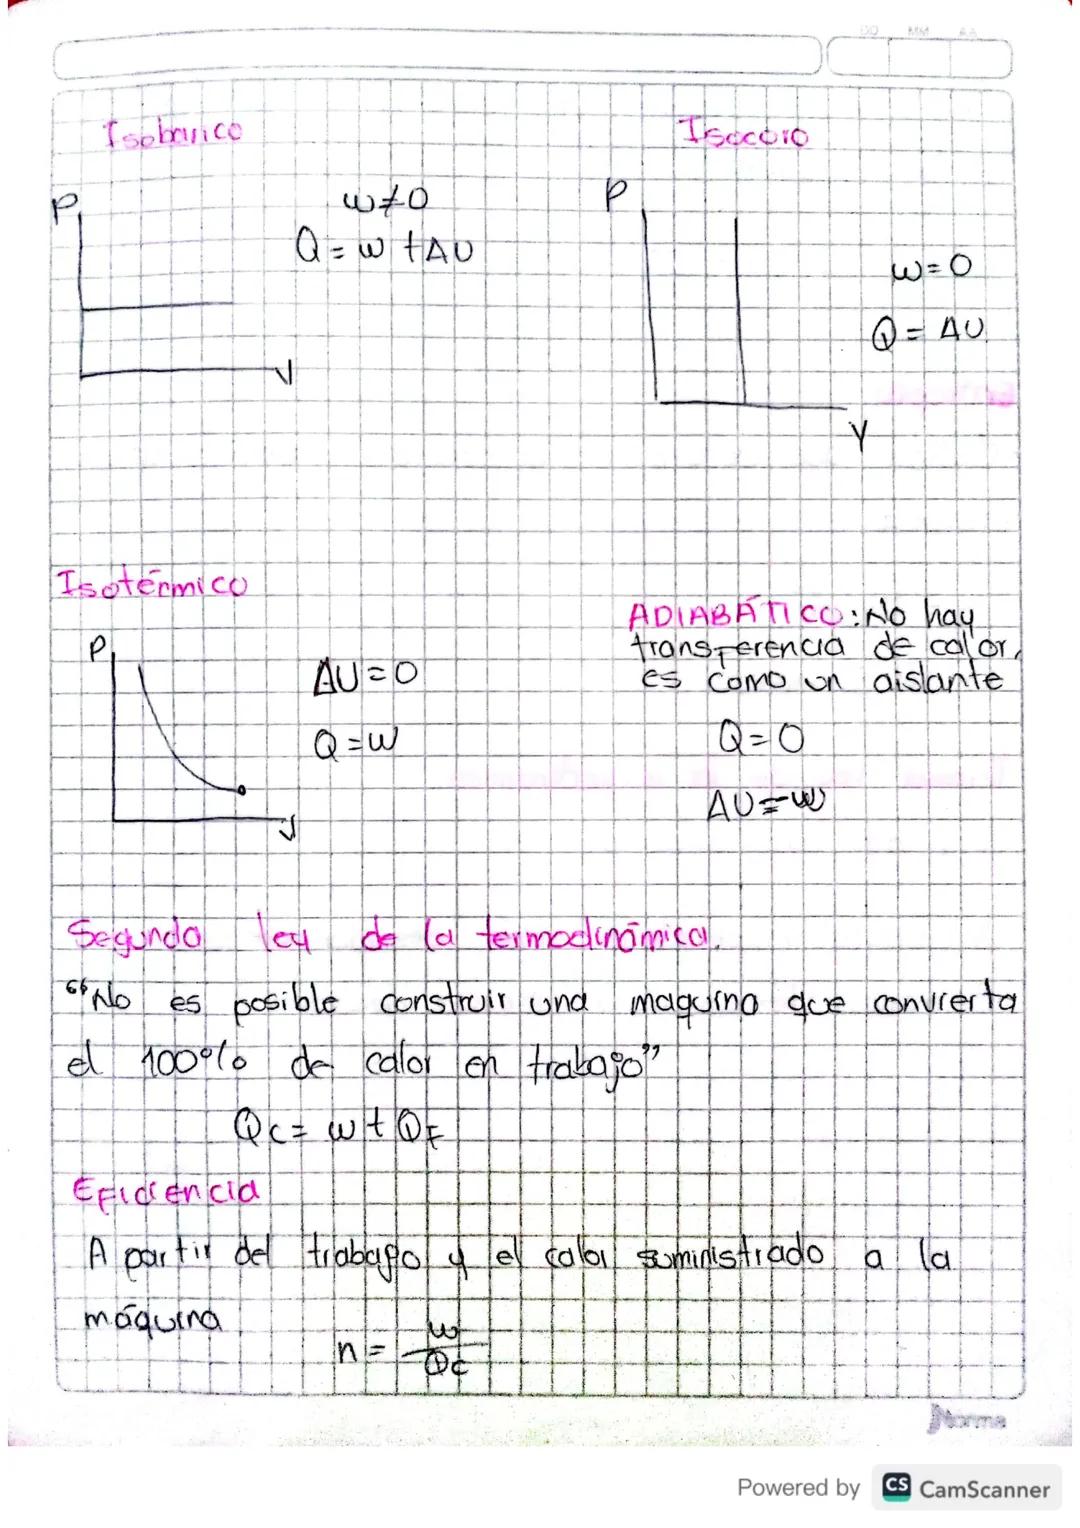 DD MM AA
Isobarico
P
w≠0
Q = w + ΔU
V
Isocoro
P
w = 0
Q = ΔU.
V
Isotérmico
P
ΔU = 0
Q = w
V
ADIABÁTICO: No hay
transferencia de calor,
es como un aislante
Q = 0
ΔU = -w
Segunda ley de la termodinámica.
"No es posible construir una maquina que convierta
el 100% de calor en trabajo"
Qc = w + QF
Eficiencia
A partir del trabajo y el calor suministrado a la
máquina
n = w/Qc
Norma
Powered by CS CamScanner